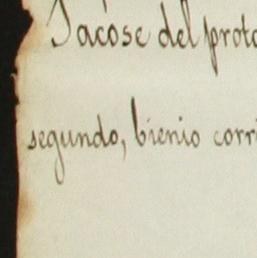 Sacóse del proto
segundo, bienio corri